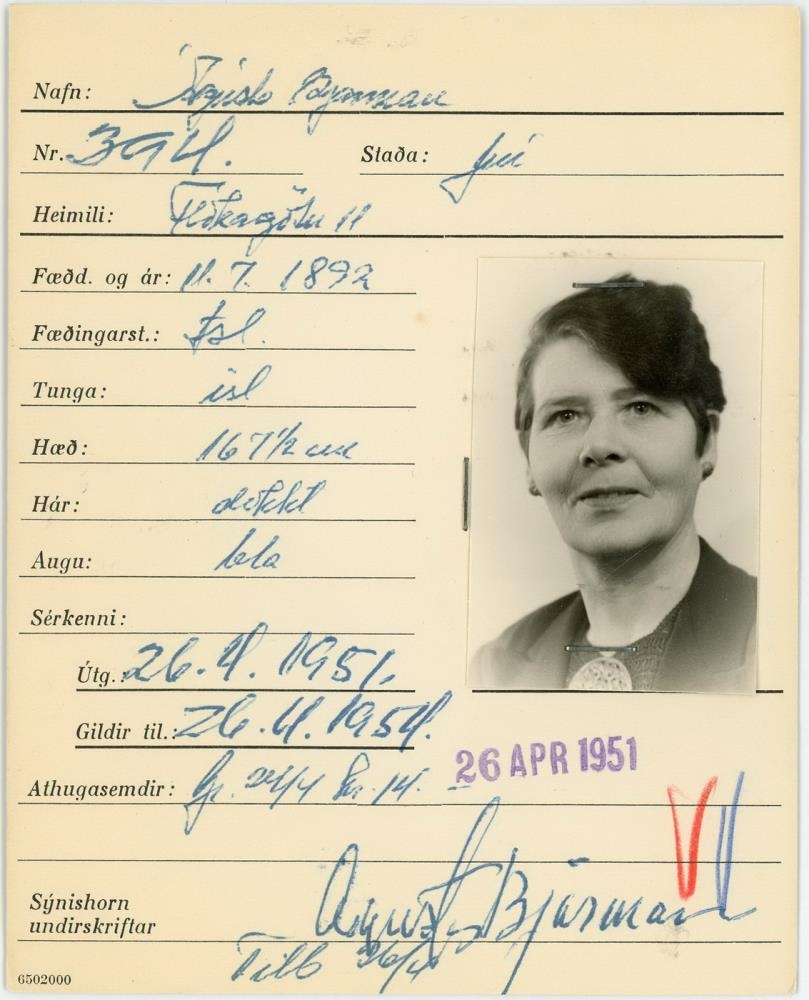 Nafn: Bjarman
Nr. 394. Staða: frú
Heimili: Flókagötu 11
Fædd. og ár: 11. 7. 1892
Fæðingarst.: Ísl.
Tunga: ísl
Hæð: 167½ cm
Hár: dökkt
Augu: blá
Sérkenni:
Útg.: 26.4.1951.
Gildir til.: 26.4.1954.
Athugasemdir: Gr. 24/4 kr. 14.-
26 APR 1951
Sýnishorn
undirskriftar Bjarman
Tilb 26/4
6502000